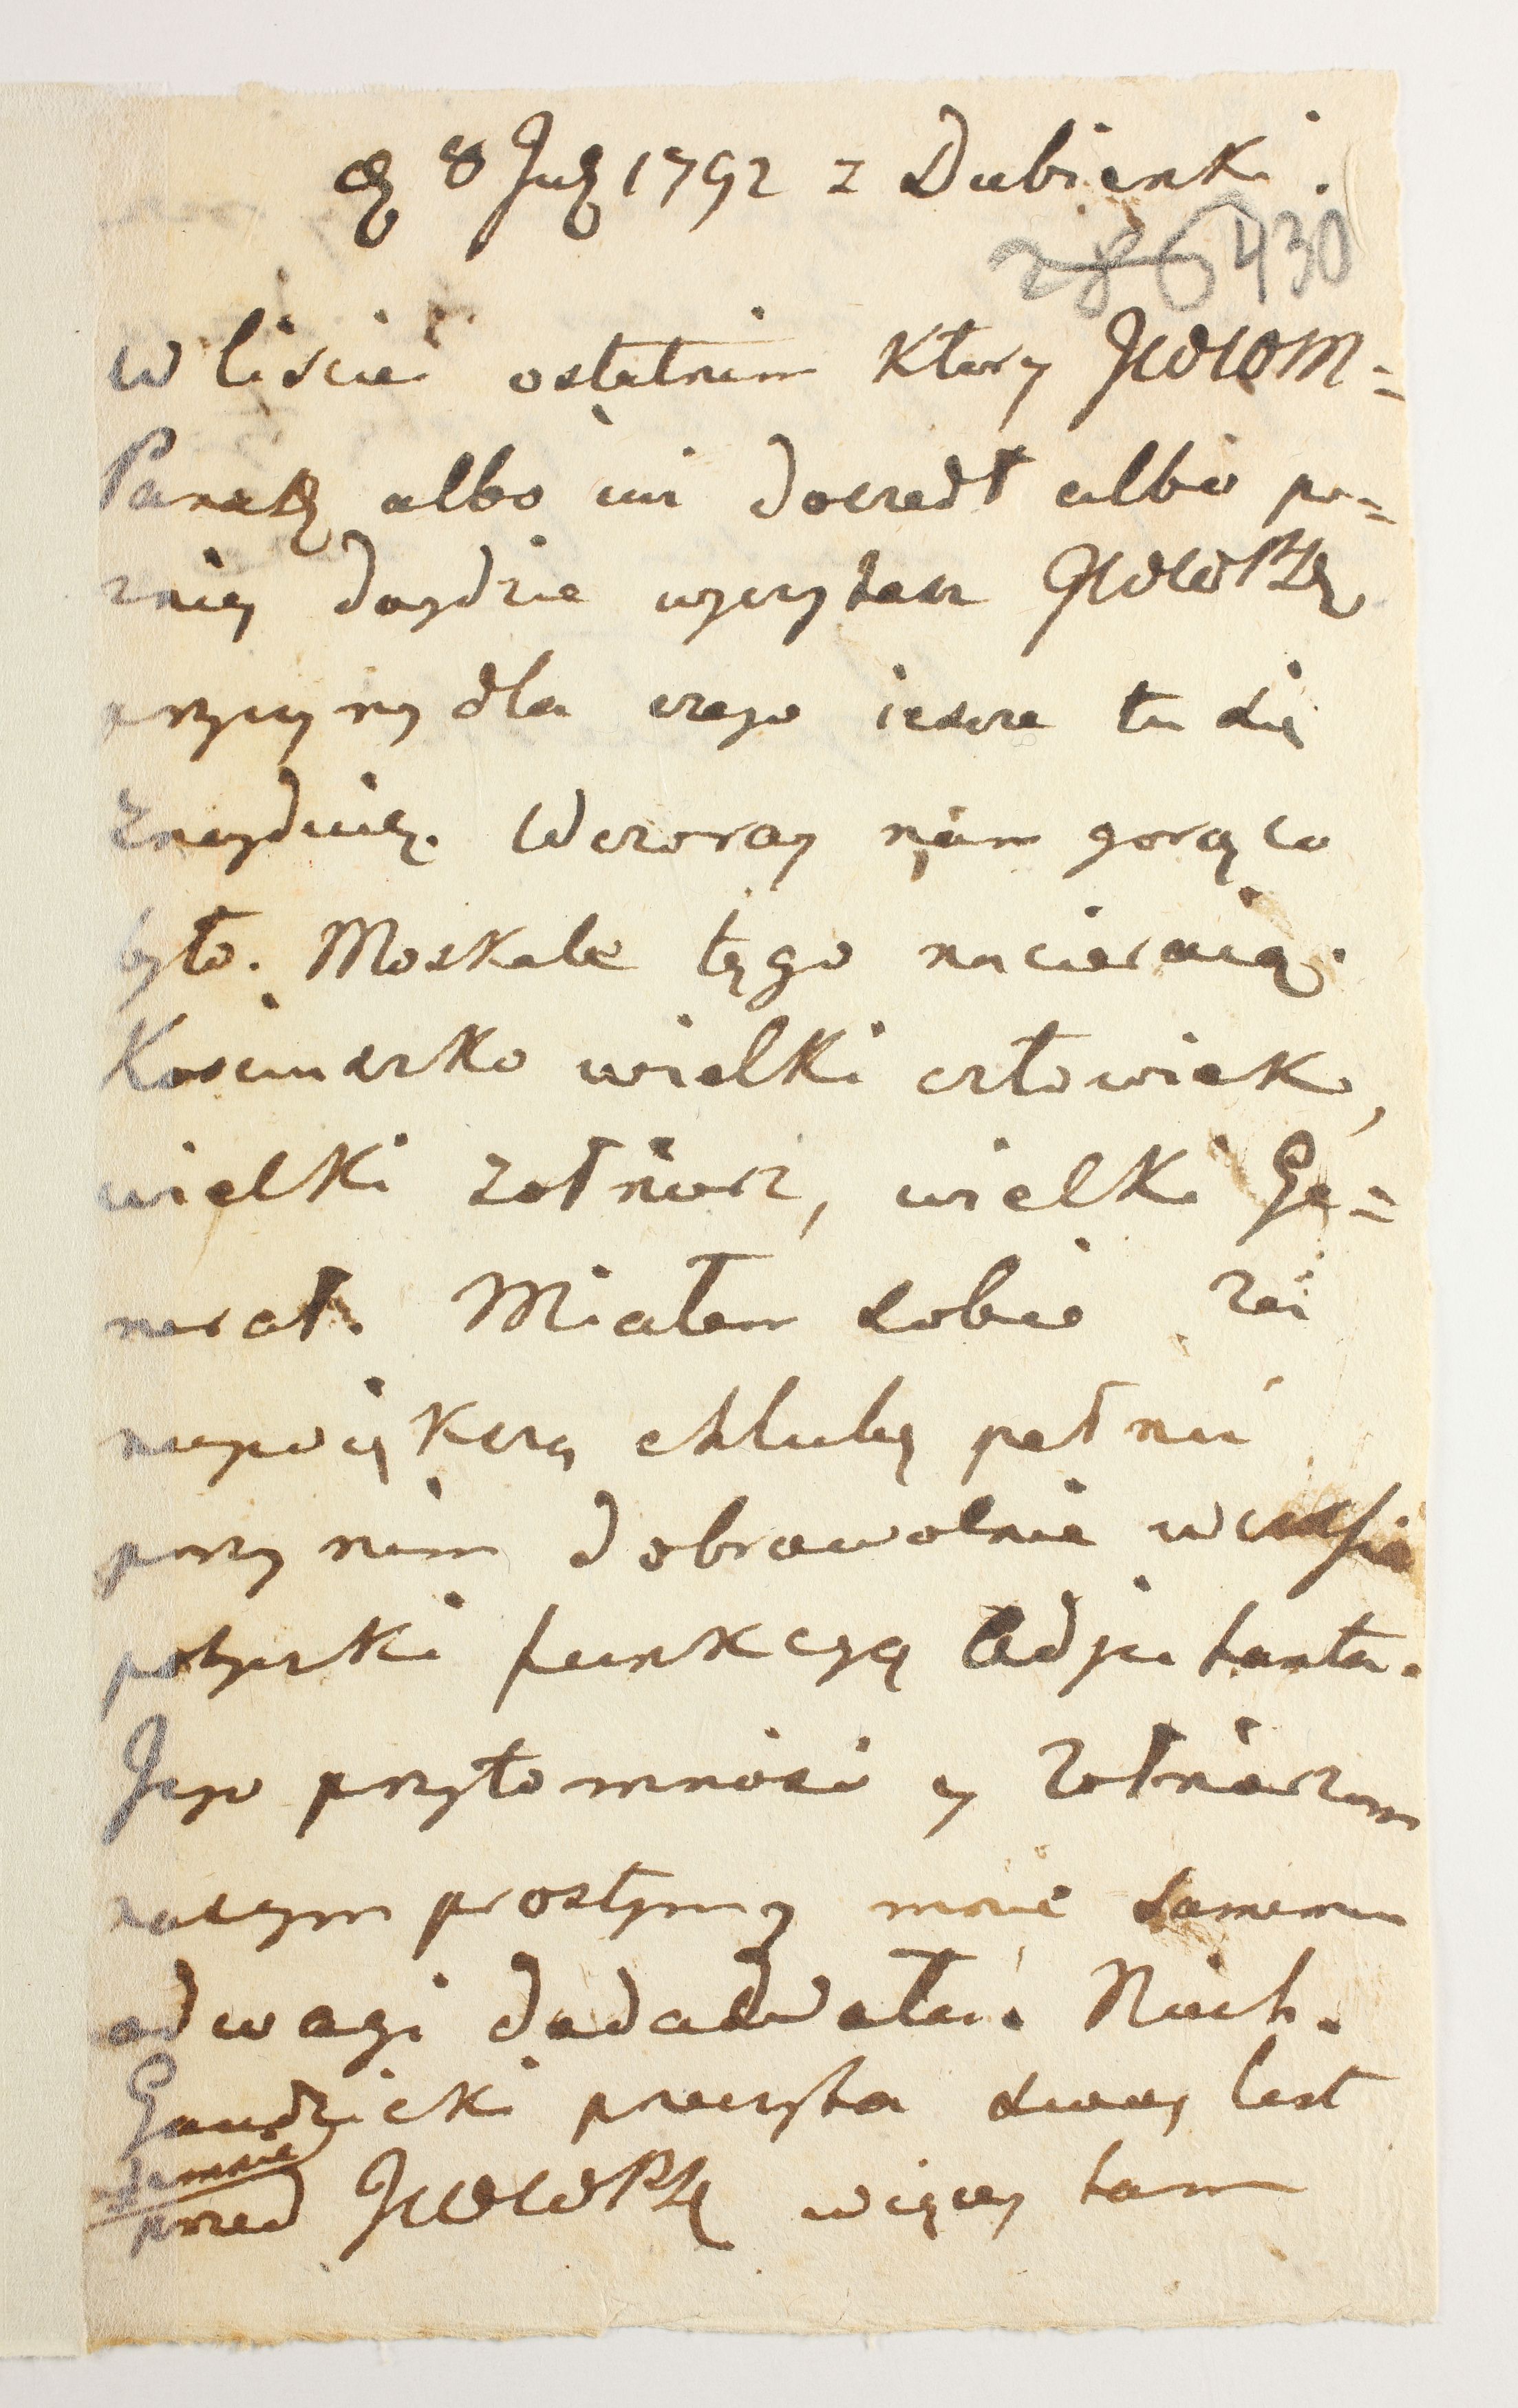 d. 8 July 1792 z Dubienki.
286 430
w liscie ostatnim ktory JWWM=
Panak albo iuż doszedł albo po=
zniey doydzie wyczytasz JWWPan
przyczyny dla czego ieszcze tu się
znayduię. Wczoray nam gorąco
było. Moskale tęgo nacieraią.
Kosciuszko wielki człowiek,
wielki zołnierz, wielki Ge=
nerał. Miałem sobie za
naywiększą chlubę pełnić
przy nim dobrowolnie w czasie
potyczki funkcyą Adjutanta.
Jego przytomność y Zołnierzom
naszym prostym y mnie samemu
odwagi dodawała. Niech
Gaudzicki przeczyta swoy list
odemnie
przed JWWPan więcey tam